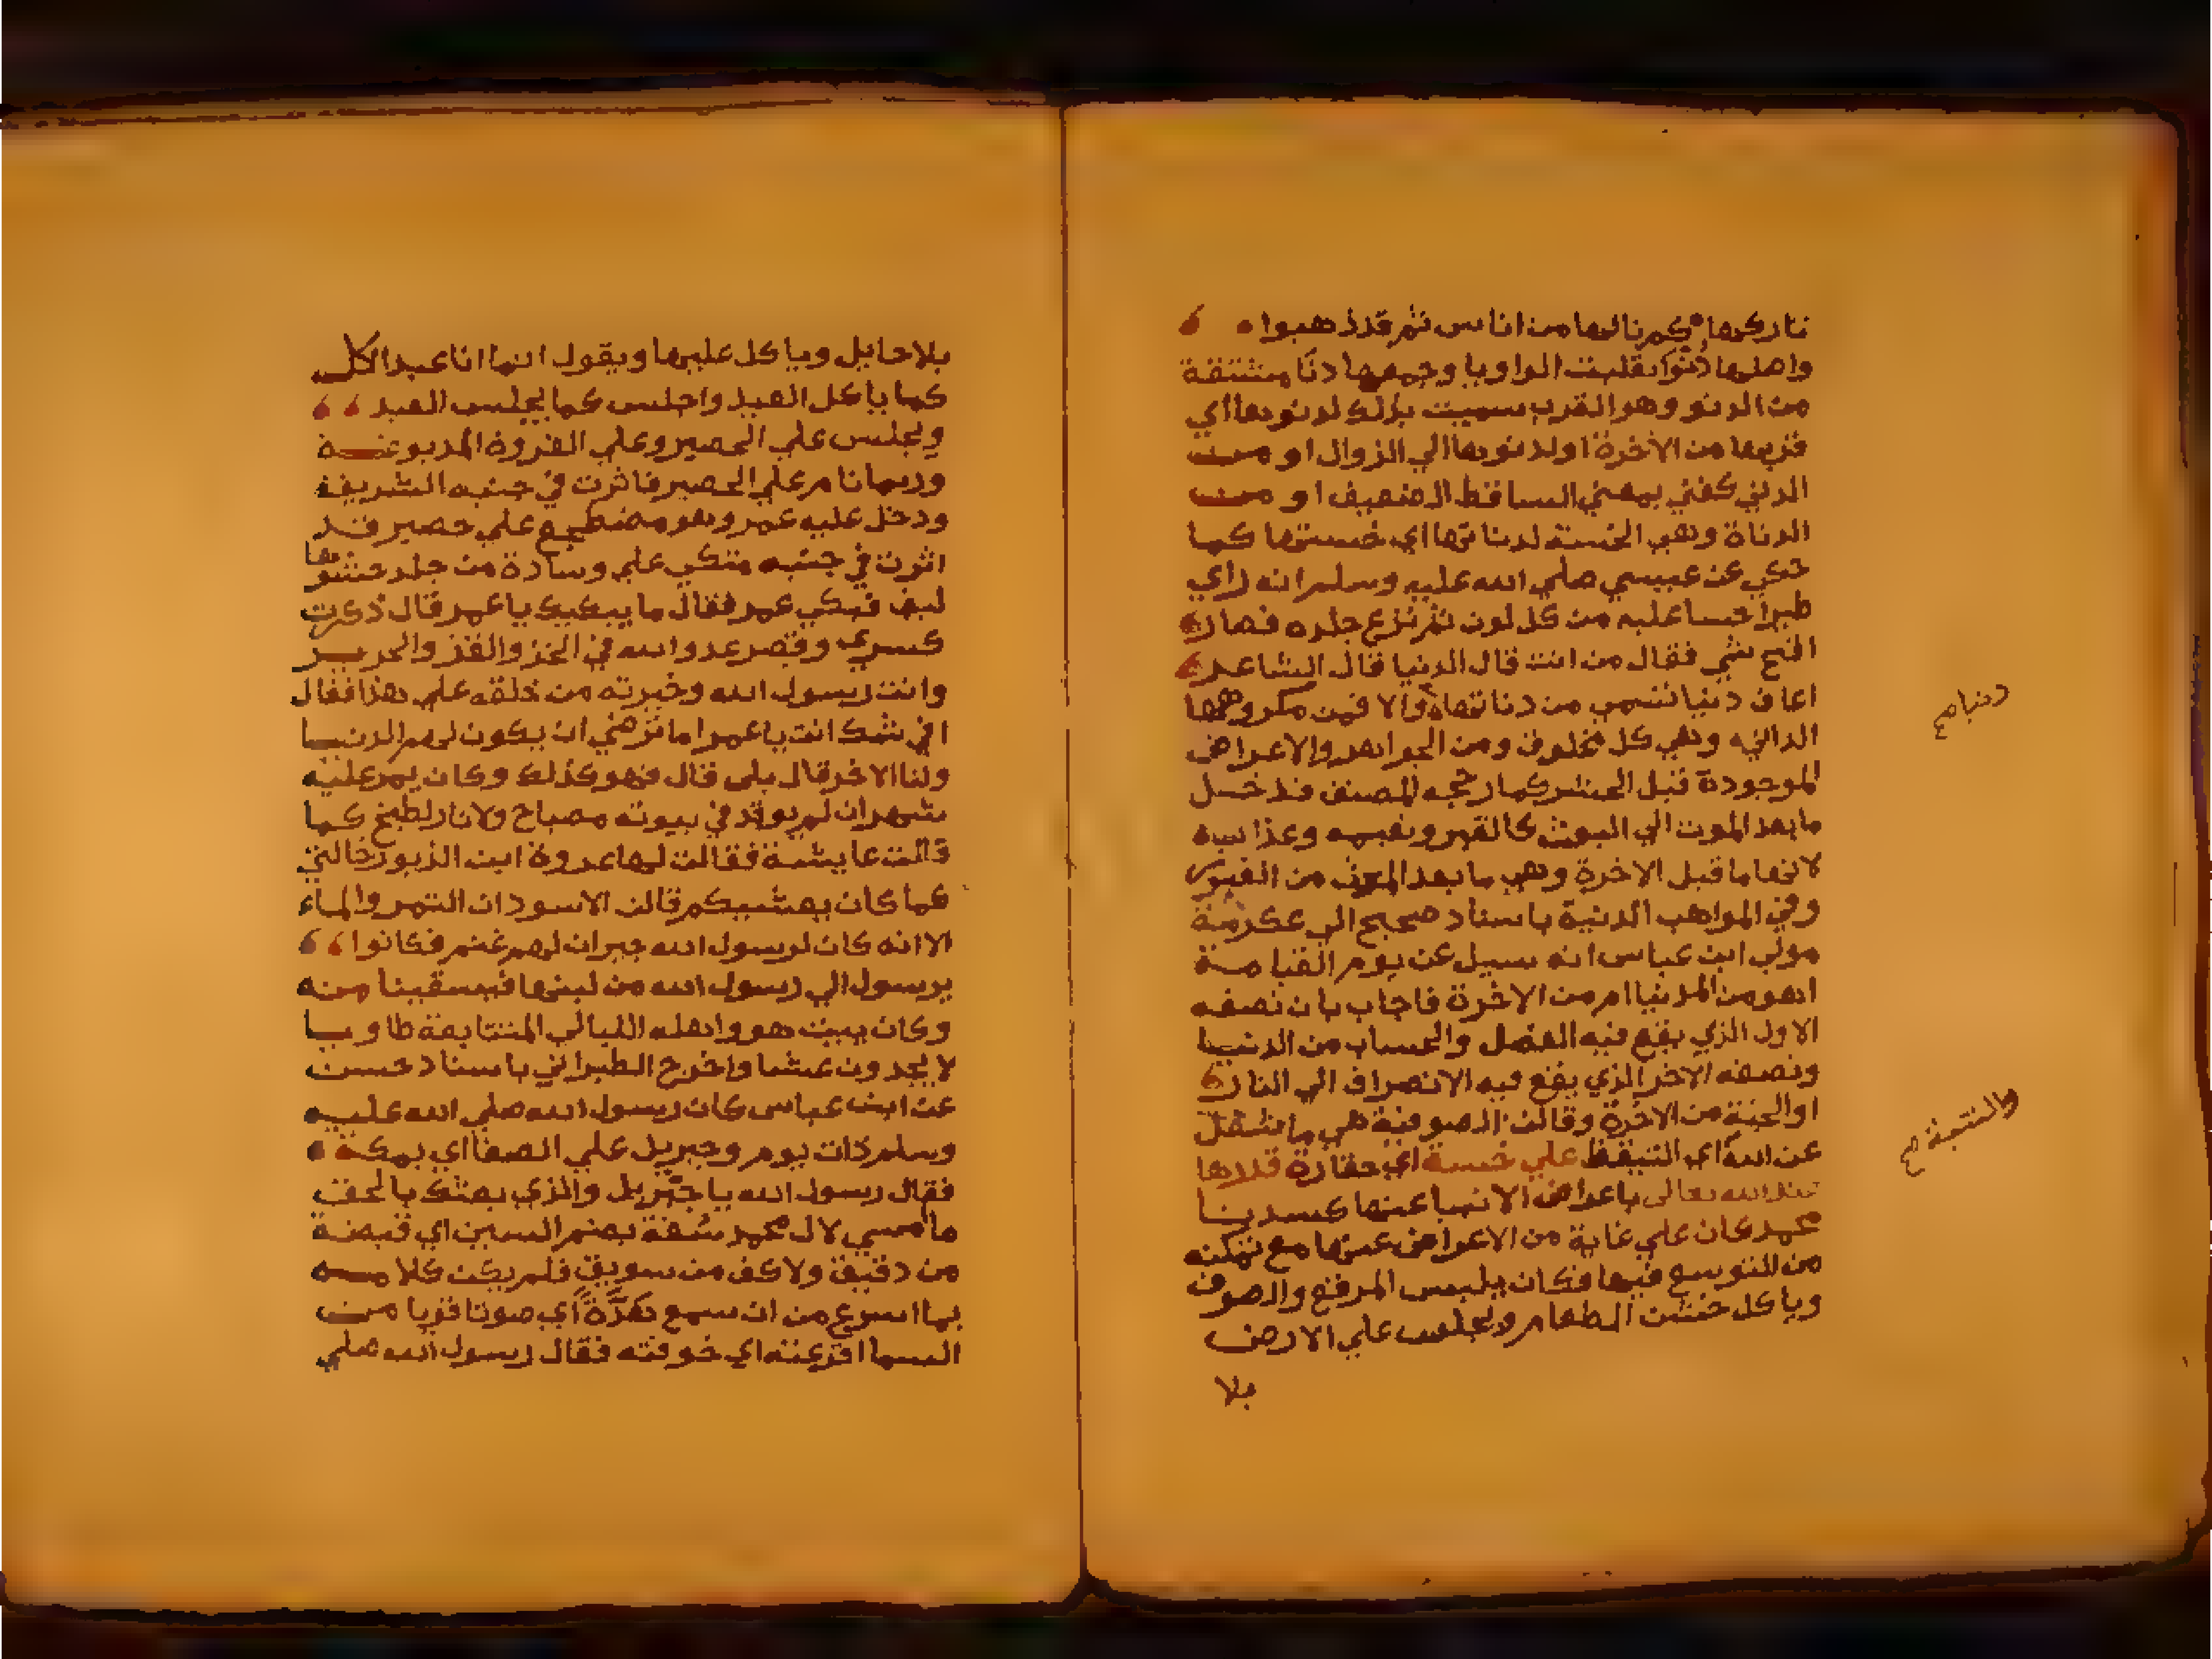 تاركها كم نالها من اناس ثم قد ذهبوا
واصلها دنوا بقلبت الواو يا وجمعها دنا مشتقة
من الدنو وهو القرب سميت بذلك لدنوها اي
قربها من الاخرة او لدنوها الي الزوال او من
الدني كغني بمعني الساقط الضعيف او من
الدناة وهي الخسة لدناتها اي خستها كما
حكي عن عيسي صلي الله عليه وسلم انه راي
طيرا حسنا عليه من كل لون ثم نزع جلده فصار
اقبح شي فقال من انت قال الدنيا قال الشاعر
اعاف دنيا تسمي من دناتها والا فمن مكروهها
الداني وهي كل مخلوق ومن الجواهر والاعراض
الموجودة قبل الحشر كما رجحه المصنف فدخل
ما بعد الموت الي البعث كالقبر ونعيمه وعذابه
لانها ما قبل الاخرة وهي ما بعد البعث من القبور
وفي المواهب الدنية باسناد صحيح الي عكرمة
مولي ابن عباس انه سيل عن يوم القيامة
اهو من الدنيا ام من الاخرة فاجاب بان نصفه
الاول الذي يقع فيه الفصل والحساب من الدنيا
ونصفه الاخر الذي يقع فيه الانصراف الي النار
او الجنة من الاخرة وقالت الصوفية هي ما شغل
عن الله اي التيقظ علي خسة اي حقارة قدرها
عند الله تعالى باعراض الانبيا عنها كسيدنا
محمد كان علي غاية من الاعراض عنها مع تمكنه
من التوسع فيها فكان يلبس المرقع والصوف
وياكل خشن الطعام ويجلس علي الارض
بلا
دنيا صح
والنتيجة صح
بلا حايل وياكل عليها ويقول انما انا عبد اكل
كما ياكل العبد واجلس كما يجلس العبد
ويجلس علي الحصير وعلي الفروة المدبوغة
وربما نام علي الحصير فاثرت في جنبه الشريف
ودخل عليه عمر وهو مضطجع علي حصير قد
اثرت في جنبه متكي علي وسادة من جلد حشوها
ليف فبكي عمر فقال ما يبكيك يا عمر قال ذكرت
كسري وقيصر عدوا الله في الخز والقز والحرير
وانت رسول الله وخيرته من خلقه علي هذا فقال
افي شك انت يا عمر اما ترضي ان يكون لهم الدنيا
ولنا الاخر قال بلي قال فهو كذلك وكان يمر عليه
شهران لم يوقد في بيوته مصباح ولا نار لطبخ كما
قالت عايشة فقالت لها عروة ابن الزبور خالتي
فما كان يعشيكم قالت الاسودان التمر والماء
الا انه كان لرسول الله جيران لهم غنم فكانوا
يرسول الي رسول الله من لبنها فيسقينا منه
وكان يبيت هو واهله الليالي المتتابعة طاويا
لا يجدون عشا واخرج الطبراني باسناد حسن
عن ابن عباس كان رسول الله صلي الله عليه
وسلم ذات يوم وجبريل علي الصفا اي بمكة
فقال رسول الله يا جبريل والذي بعثك بالحق
ما امسي لال محمد سفة بضم السين اي قبضة
من دقيق ولا كف من سويق فلم يكن كلامه
بها اسرع من ان سمع هدة اي صوتا قويا من
السما افزعته اي خوفته فقال رسول الله صلي